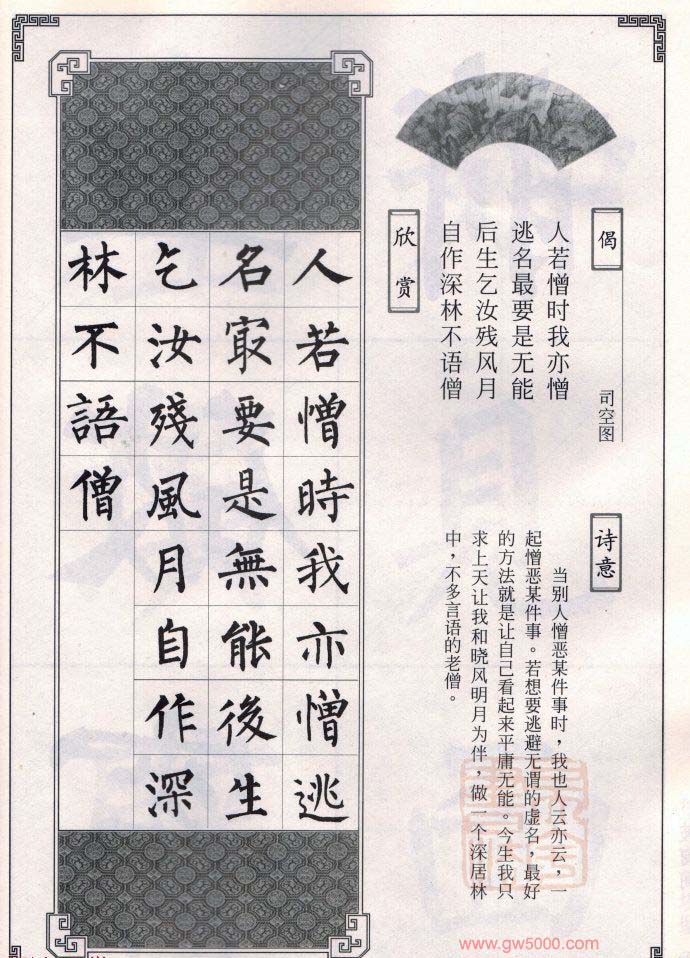 偈
司空图
人若憎时我亦憎
逃名最要是无能
后生乞汝残风月
自作深林不语僧
诗意
当别人憎恶某件事时，我也人云亦云，一
起憎恶某件事。若想要逃避无谓的虚名，最好
的方法就是让自己看起来平庸无能。今生我只
求上天让我和晓风明月为伴，做一个深居林
中，不多言语的老僧。
欣赏
人若憎時我亦憎逃
名冣要是無能後生
乞汝殘風月自作深
林不語僧
www.gw5000.com